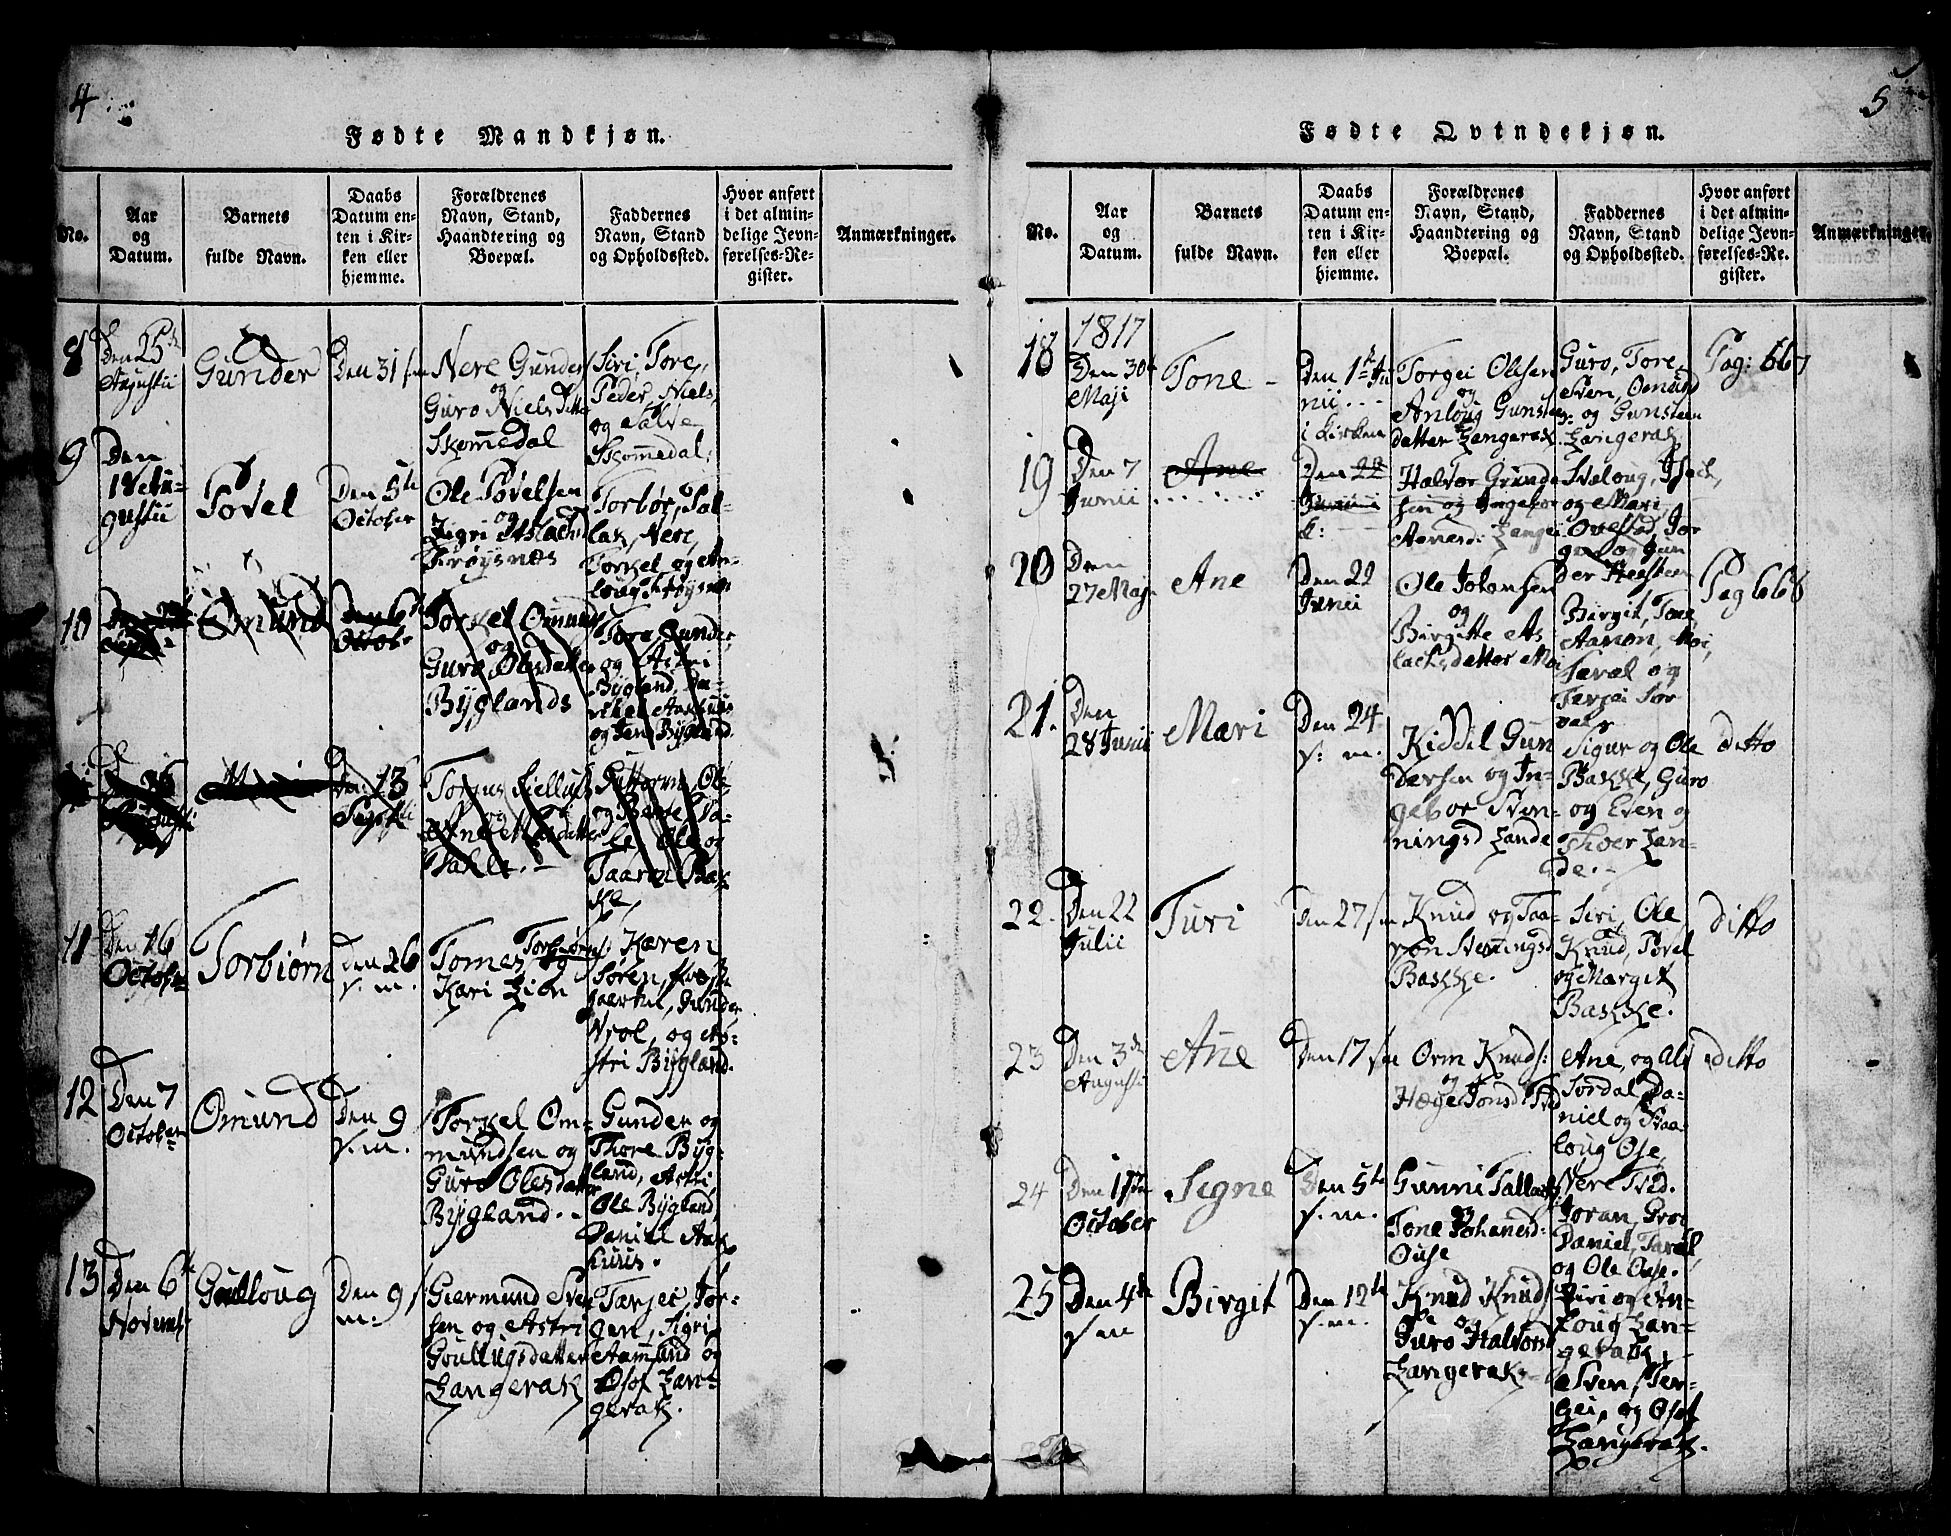 4
Fødte Mandkjøn.
No.
Aar
og
Datum.
Barnets
fulde Navn.
Daabs
Datum en-
ten i Kir-
ken eller
hjemme.
Forældrenes
Navn, Stand,
Haandtering og
Boepæl.
Faddernes
Navn, Stand
og Opholdssted.
Hvor anført
i det almin-
delige Jevn-
førelses-Re-
gister.
Anmærkninger.
8
Den 25de
Augustii
Gunder
Den 31 s m
Nere Gunders
og
Guro Nielsdtte
Skomedal
Siri, Tore,
Peder, Niels,
og Salve
Skomedal.
9
Den
18 Au-
gustii
Povel
Den 5te
October
Ole Povelsen
og
Sigri Aslachsd
Frøysnes
Torbør, Sal-
lak, Nere,
Torkel og An-
loug Frøysnes
10
Omund
Den 6te
Octobr
Torkel Omunds
og
Guro Olesdatter
Byglands
Tore, Gunder,
og Astri
Bygland, Da-
niel Aakhuus
og Jens Bygland.
Den 13
Ole
og
Ole og
Taaran Bak
ke,
11
Den 16
October
Torbiørn
Den 26
s. m.
Tomes Torbiørns:
og
Kari Lion
Karen
Søren,
Gunder
og As-
stri Bygland.
12
Den 7
October
Omund
Den 9
s. m.
Torkel Om-
mundsen og
Guro Olesdatter
Bygland.
Gunder og
Thore Byg-
land, Astri,
Ole Bygland,
Daniel Aak
huus.
13
Den 6te
Novemb.
Goulloug
Den 9 s
m:
Giermund Sven
sen og Astri
Goullugsdatter
Langerak
Tarjei, Jør-
gen, Sigri
Aamund og
Osof Lan-
gerak.
5
Fødte Qvindekjøn.
No.
Aar
og
Datum.
Barnets
fulde Navn.
Daabs
Datum en-
ten i Kir-
ken eller
hjemme.
Forældrenes
Navn, Stand,
Haandtering og
Boepæl.
Faddernes
Navn, Stand
og Opholdssted.
Hvor anført
i det almin-
delige Jevn-
førelses-Re-
gister.
Anmærkninger.
18
1817
Den 30te
Maji
Tone
Den 1ste Ju
nii
i Kirken
Torgei Olesen
og
Anloug Gunsteens
datter Langerak
Guro, Tore,
Sven, Omund
og Gunsteen
Langerak
Pag: 667
19
Den 7
Junii
Ane
Den 22
Junii
k:
Halvor Grunde
sen og Ingebor
Svaloug, Isach,
og Mari
Ovestad, Jør
gen og Gun
der Heestem
20
Den
27 Maj
Ane
Den 22
Junii
Ole Johansen
og
Birgitte As
lachsdatter Moi
Birgit, Tone,
Aanon, Moi,
Taral og
Tarjei Sor
dahl
Pag 668
21.
Den
28 Junii
Mari
Den 24
s. m.
Kiddil Gun
dersen og In-
gebor Sven-
ningsd Lande
Sigur og Ole
Bakke, Guro
og Even og
Thoer Lan-
de.
ditto
22.
Den 22
Julii
Turi
Den 27 s m
Knud og Taa-
ron Sveningsd
Bakke.
Siri, Ole
Knud, Povel
og Margit
Bakke.
ditto
23
Den 3de
Augusti
Ane
Den 17 s m
Orm Knuds:
og
Hæge Jonsd Tved
Ane, og Ali
Sordal Da-
niel og Aaa-
loug Ose,
Nere Tved.
ditto
24
October
Signe
Den 5te
s. m.
Gunni Tallachs
og
Tone Johanesd:
Ouse
Joran, Groe,
Daniel, Taral,
og Ole Ouse.
25
Den 4de
s m
Birgit
Den 12te
s. m.
Knud Knuds
og
Guro Halvorsd
Langerak
Siri og An-
loug Lan-
gerak,
Sven, Ter-
gei, og Osof
Langerak.